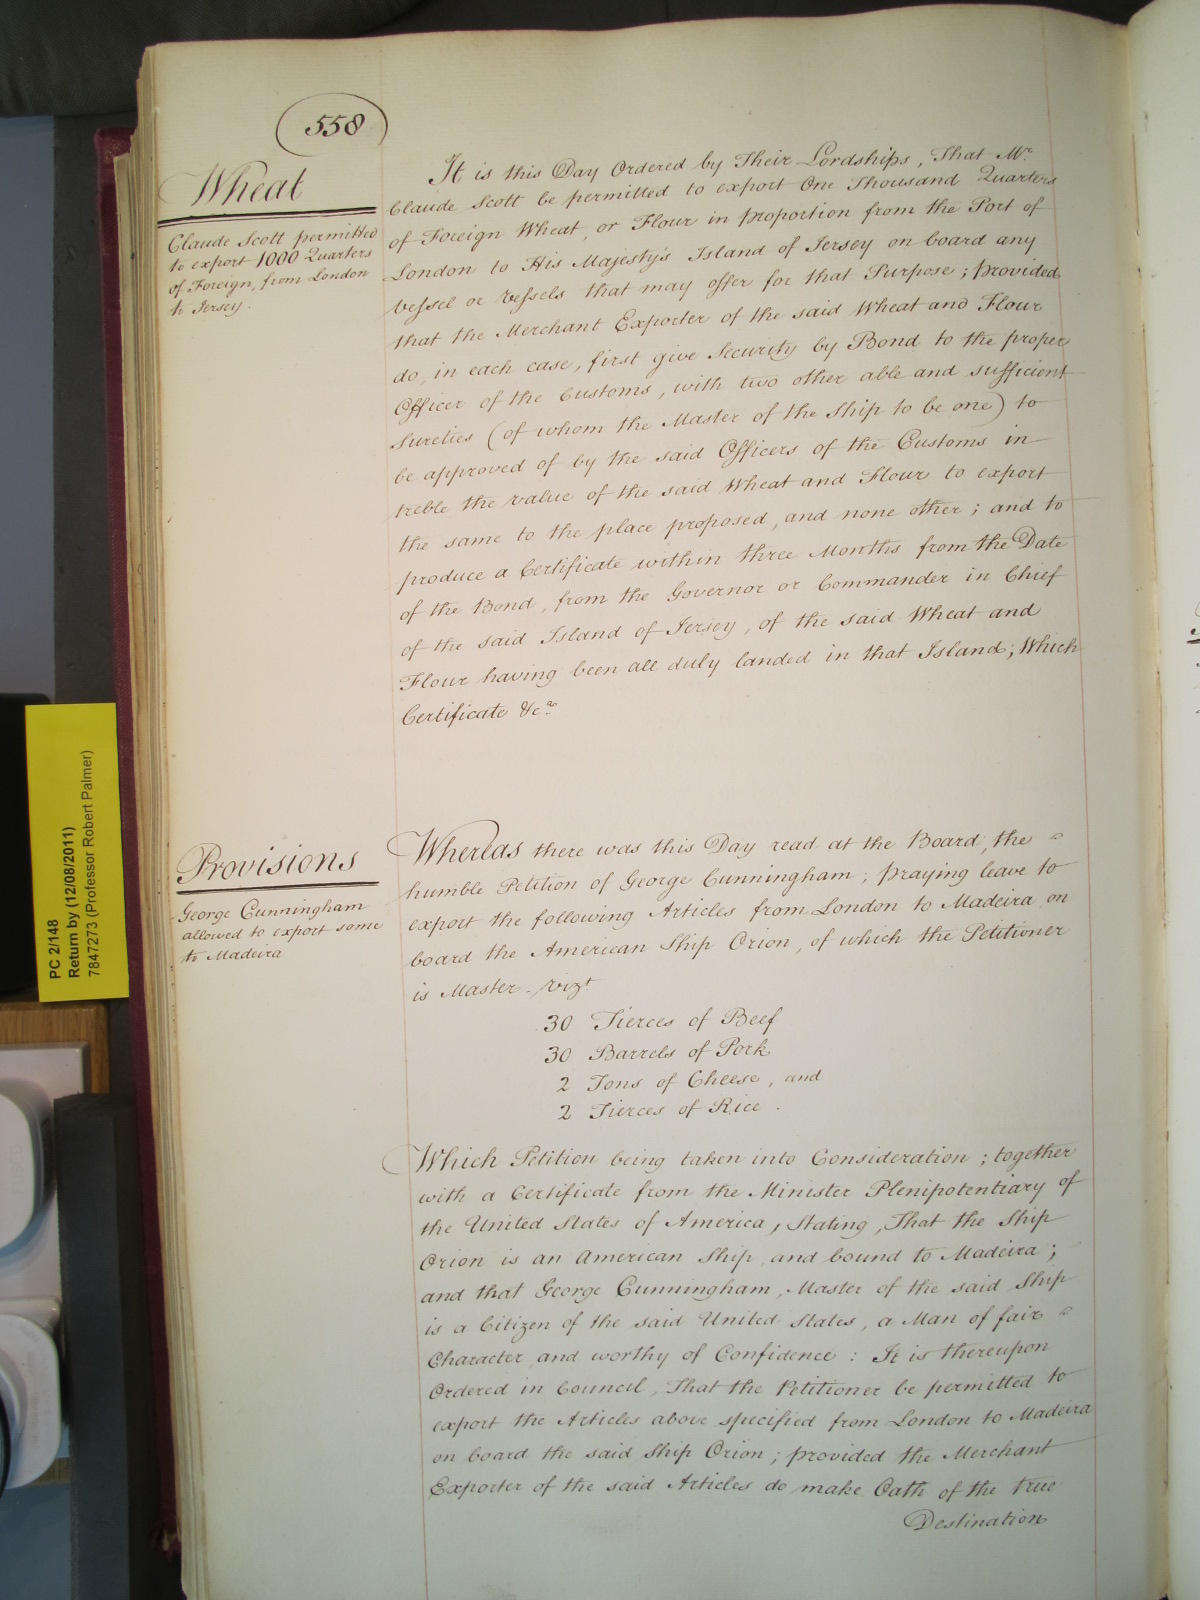 558
Wheat
Claude Scott permitted
to export 1000 Quarters
of Foreign, from London
to Jersey.
It is this Day Ordered by Their Lordships, That Mr.
Claude Scott be permitted to export One Thousand Quarters
of Foreign Wheat, or Flour in proportion from the Port of
London to His Majesty's Island of Jersey on board any
vessel or vessels that may offer for that Purpose; provided
that the Merchant Exporter of the said Wheat and Flour
do, in each case, first give Security by Bond to the proper
Officer of the Customs, with two other able and sufficient
Sureties (of whom the Master of the Ship to be one) to
be approved of by the said Officers of the Customs in
treble the value of the said Wheat and Flour to export
the same to the place proposed, and none other; and to
produce a Certificate within three Months from the Date
of the Bond, from the Governor or Commander in Chief
of the said Island of Jersey, of the said Wheat and
Flour having been all duly landed in that Island; Which
Certificate &ca
Provisions
George Cunningham
allowed to export some
to Madeira
Whereas there was this Day read at the Board, the
humble Petition of George Cunningham; praying leave to
export the following Articles from London to Madeira, on
board the American Ship Orion, of which the Petitioner
is Master - vizt
30 Tierces of Beef
30 Barrels of Pork
2 Tons of Cheese, and
2 Tierces of Rice.
Which Petition being taken into Consideration; together
with a Certificate from the Minister Plenipotentiary of
the United States of America, stating, That the Ship
Orion is an American Ship, and bound to Madeira;
and that George Cunningham, Master of the said Ship
is a Citizen of the said United States, a Man of fair
Character, and worthy of Confidence: It is thereupon
Ordered in Council, That the Petitioner be permitted to
export the Articles above specified from London to Madeira
on board the said Ship Orion; provided the Merchant
Exporter of the said Articles do make Oath of the true
Destination
PC 2/148
Return by (12/08/2011)
7847273 (Professor Robert Palmer)